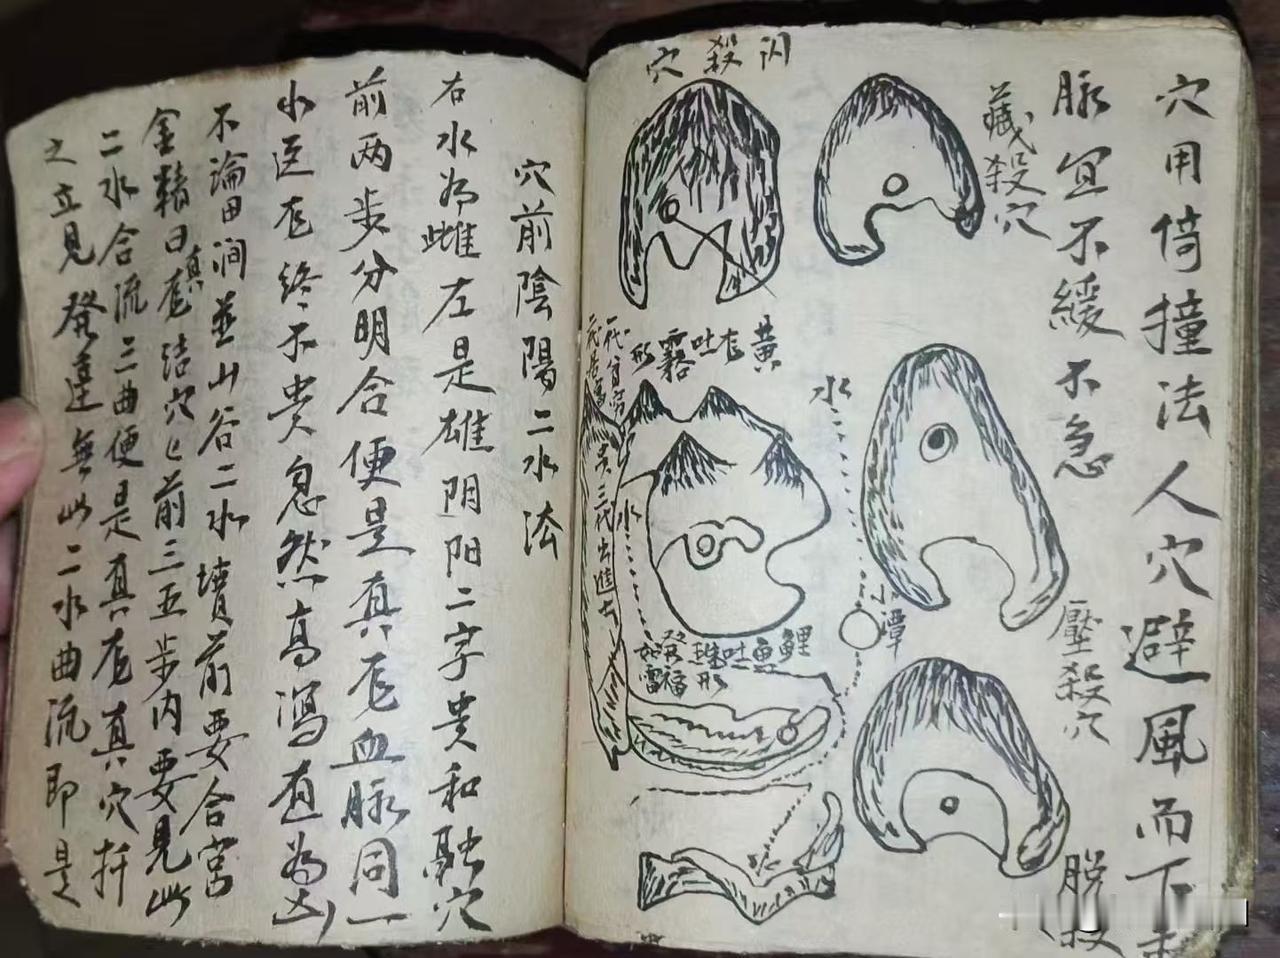 穴用倚撞法人穴避風而下
脉宜不緩不急
藏殺穴
閃殺穴
壓殺穴
脱殺
黄龙吐霧形
水
小潭
水
鯉魚吐珠形
發福如雷
水
穴前陰陽二水法
右水为雌左是雄阴阳二字贵和融穴
前两步分明合便是真龙血脉同一
水迢龙终不贵忽然高瀉直为凶
不論田涧並山谷二水墳前要合宫
金精曰真龙结穴穴前三五步内要見此
二水合流三曲便是真龙真穴扦
之立見發達無此二水曲流即是